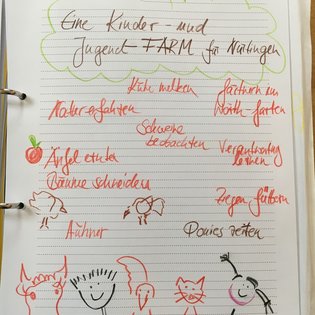 Eine Kinder- und
Jugend-FARM für Nürtingen
Kühe melken
gärtnern im
Natur erfahren
Schweine
beobachten
Verantwortung
lernen
Äpfel ernten
Bäume schneiden
Ziegen füttern
Hühner
Ponies reiten